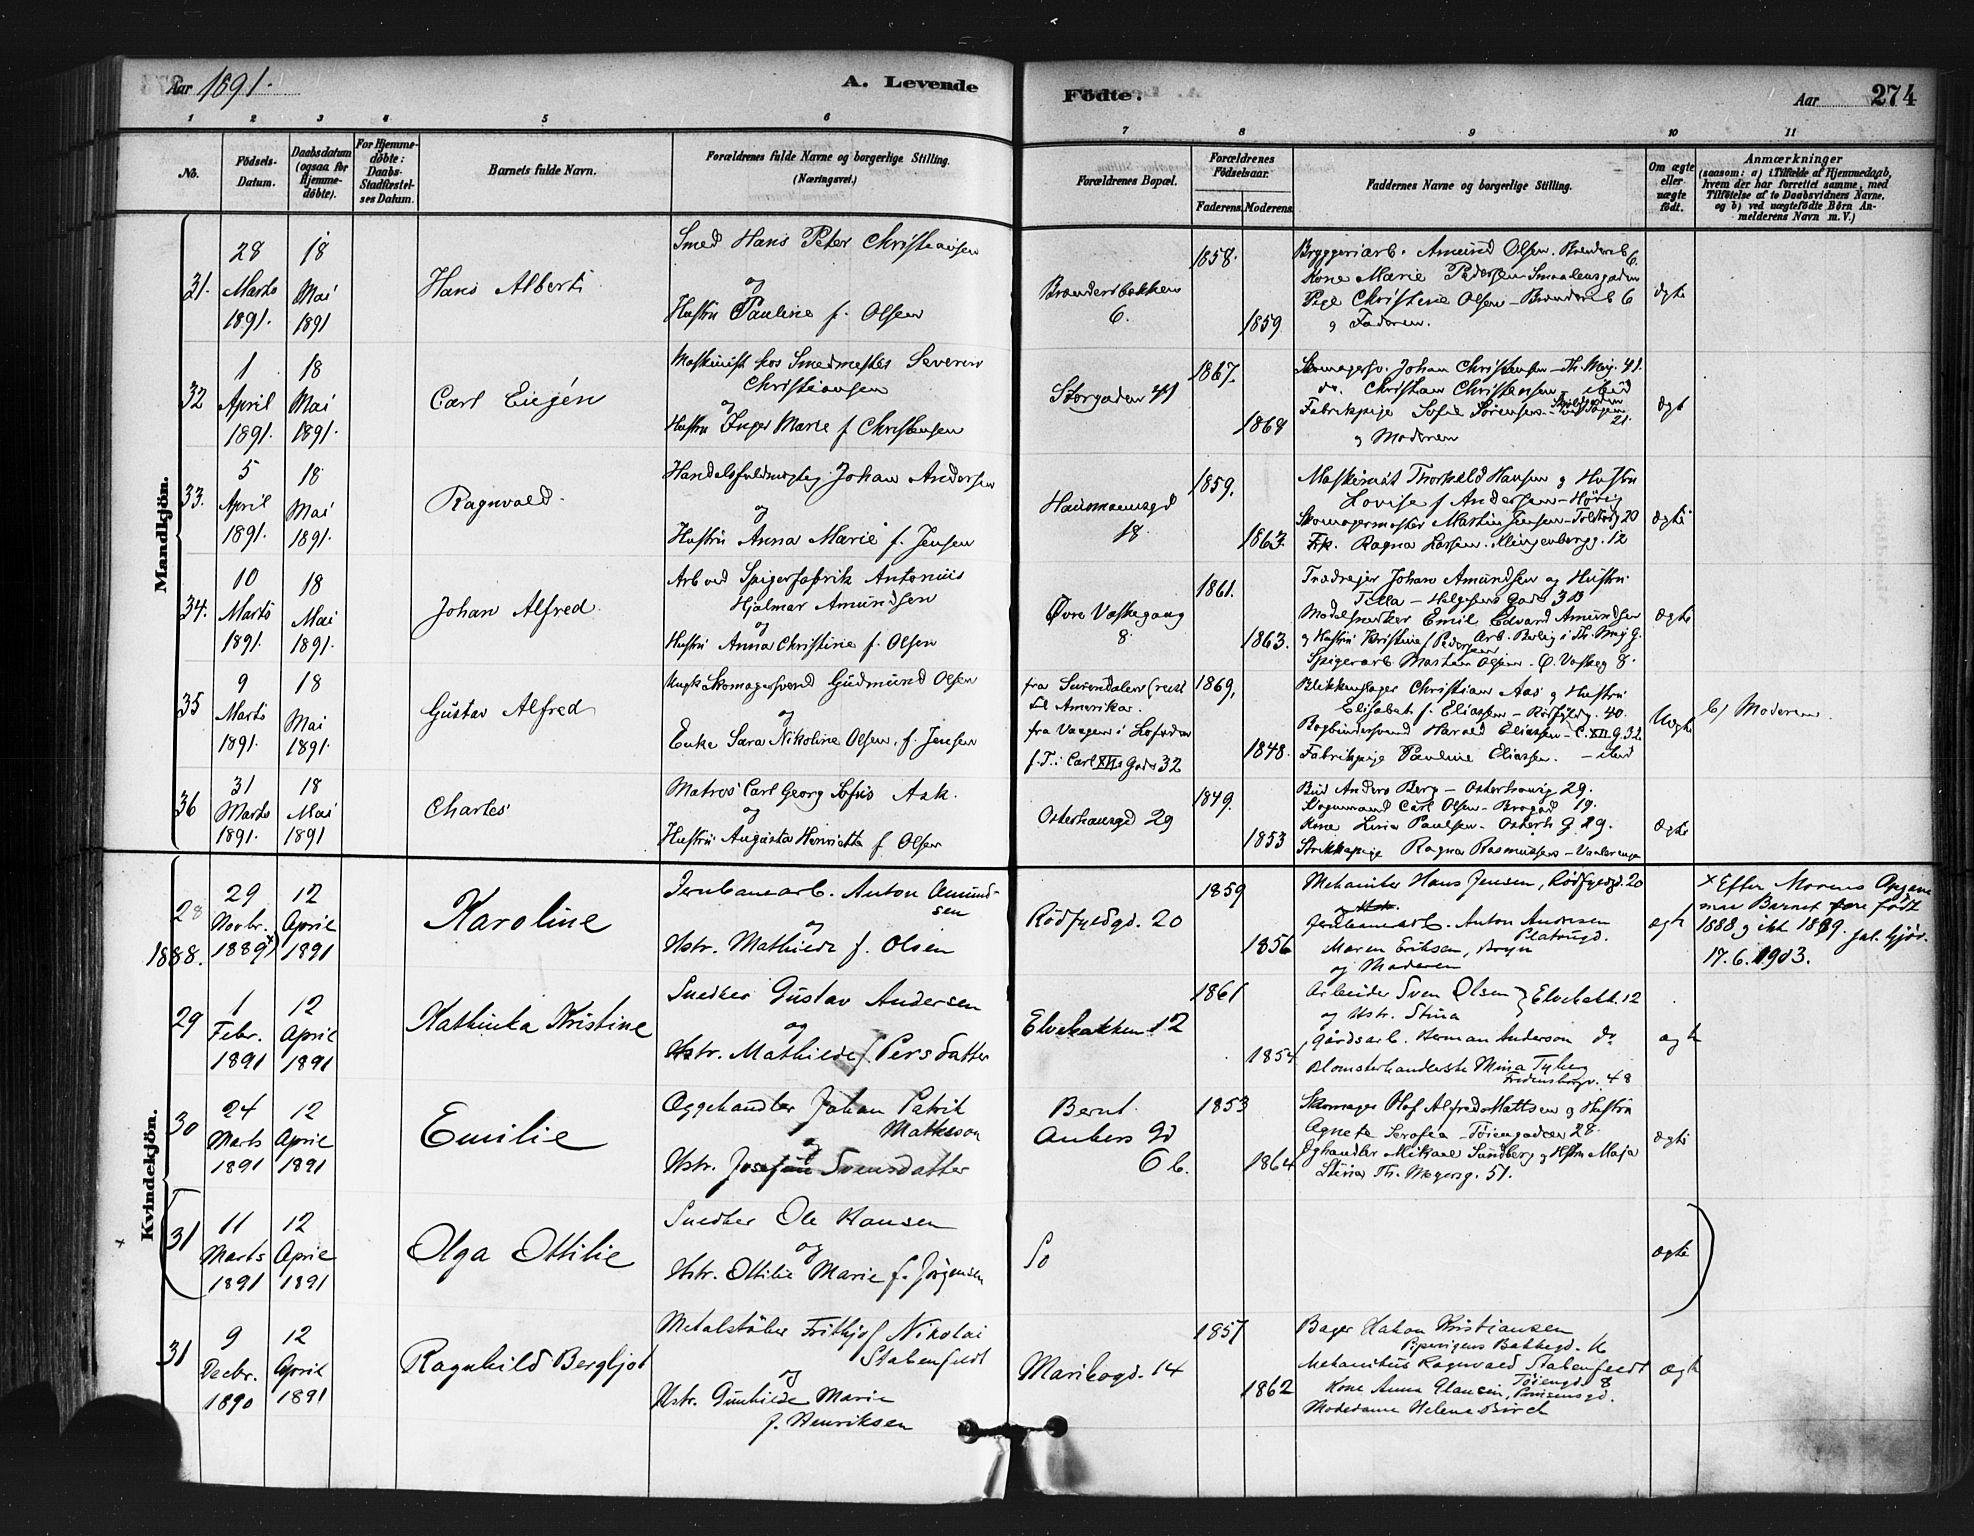 Aar 1891.
A. Levende
Födte.
Aar
274
1 2 3 4 5 6 7 8 9 10 11
No.
Födsels-
Datum.
Daabsdatum
(ogsaa for
Hjemme-
döbte).
For Hjemme-
döbte:
Daabs-
Stadfæstel-
ses Datum.
Barnets fulde Navn.
Forældrenes fulde Navne og borgerlige Stilling.
(Næringsvei.)
Forældrenes Bopæl.
Forældrenes
Födselsaar.
Faderens.
Moderens.
Faddernes Navne og borgerlige Stilling.
Om ægte
eller
uægte
födt.
Anmærkninger
(saasom: a) i Tilfælde af Hjemmedaab,
hvem der har forrettet samme, med
Tilföielse af to Daabsvidners Navne,
og b) ved uægtefödte Börn An-
melderens Navn m. V.)
Mandkjön.
31.
28
Marts
1891.
18
Mai
1891
Hans Albert
Smed Hans Peter Christiansen
og
Hustru Pauline f. Olsen
Brændersbækken
6.
1858.
1859
Bryggeriarb. Amund Olsen. Brændersb 6.
Kone Marie Pedersen Smaalensgaden
Pige Christine Olsen - Brændersb 6
og Faderen.
ægte
32
1
April
1891.
18
Mai
1891.
Carl Eugén
Maskinist hos Smedmester Severin
Christiansen
og
Hustru Inger Marie f Christensen
Storgaden 41
1867.
1869
Skomagersv. Johan Christensen - Th Meig. 41.
do. Christian Christensen - ibid
Fabrikpige Sofie Sörensen
21.
og Moderen
ægt
33.
5
April
1891.
18
Mai
1891.
Ragnvald
Handelsfuldmægtig Johan Andersen
og
Hustru Anna Marie f. Jensen
Hausmannsgd
18.
1859.
1863.
Maskinist Thorvald Hansen og Hustru
Lovise f Andersen - Hövig
Skomagermester Martin Jensen - Toldbodg 20
Frk. Ragna Larsen. Klingenbergg. 12
ægte
34.
10
Marts
1891.
18
Mai
1891.
Johan Alfred
Arb ved Spigerfabrik Antonius
Hjalmar Amundsen
og
Hustru Anna Christine f. Olsen
Övre Vaskegang
8.
1861.
1863.
Trædreier Johan Amundsen og Hustru
Tilla - Helgesens Gade 30
Modelsnedker Emil Edvard Amundsen
og Hustru Kristine f Pedersen Arb. Bolig i Th. Meig g.
Spigerarb. Martin Olsen. Ö. Vaskeg 8.
ægte
35
9
Marts
1891.
18
Mai
1891.
Gustav Alfred
Ungk Skomagersvend Gudmund Olsen
og
Enke Sara Nikoline Olsen, f. Jensen
fra Surendalen (reist
til Amerika.
fra Vaagen i Lofoden
f.T.: Carl XIIs Gade 32
1869,
1848.
Blikkenslager Christian Aas og Hustru
Elisabet f. Eliassen - Rödfyldg. 40.
Bogbindersvend Harald Eliassen - C. XII G. 32
Fabrikpige Pauline Eliassen. - ibid
Uægte
b) Moderen.
36
31
Marts
1891.
18
Mai
1891
Charles
Matros Carl Georg Sofus Ask.
og
Hustru Augusta Henriette f Olsen
Osterhausgd 29
1849.
1853
Bud Anders Berg - Osterhausg 29.
Vognmand Carl Olsen - Brogad 19.
Kone Lina Paulsen. Osterh G 29.
Strikkepige Ragna Rasmussen - Vaalerenga
ægte
Kvindekjön.
28
1888.
29
Novbr.
1889
12
April
1891
Karoline
Jernbanearb. Anton Amund-
sen
og
Hstr. Mathilde f. Olsen
Rödfyldgd. 20
1859
1856
Mekaniker Hans Jensen, Rödfyldgd. 20
Jernbanearb. Anton Andresen
Platougd.
Maren Eriksen, Bryn
og Moderen
ægt
× Efter Morens Opgave
var Barnet født
1888 og ikke 1889.
17.6.1903.
29
1
Febr.
1891
12
April
1891
Kathinka Kristine
Snedker Gustav Andersen
og
Hstr. Mathilde f. Persdatter
Elvebakken 12
1861
1854
Arbeider Sven Olsen } Elvebakk. 12
og Hstr. Stina
Gårdsarb. Herman Anderson do
Blomsterhandlerske Mina Tyberg
Fredensborgv. 48
ægt
30
24
Marts
1891
12
April
1891
Emilie
Oggehandler Johan Patrik
Mattsson
og
Hstr. Josefine Svensdatter
Bernt
Ankers gd
6 b.
1853
1864
Skomager Olof Alfred Mattsen og Hustru
Agnete Serafia - Töiengaden 28.
Oghandler Mikael Sundberg og Hstru Maja
Stina Th. Meyersg. 51.
ægte
(31
11
Marts
1891
12
April
1891
Olga Ottilie
Snedker Ole Hansen
og
Hstr. Ottilie Marie f. Jörgensen
So
ægte
)
31
9
Decbr.
1890
12
April
1891
Ragnhild Bergljot
Metalstöber Frithjof Nikolai
Stabenfeldt
og
Hstr. Gunhilde Marie
f. Henriksen
Maribogd. 14
1857
1862
Bager Hakon Kristiansen
Pipervigens Bakkegd. 16
Mekanikus Ragnvald Stabenfeldt
Töiengd. 8
Kone Anna Clausen, Prinsensgd.
Modedame Helene Birch
ægt